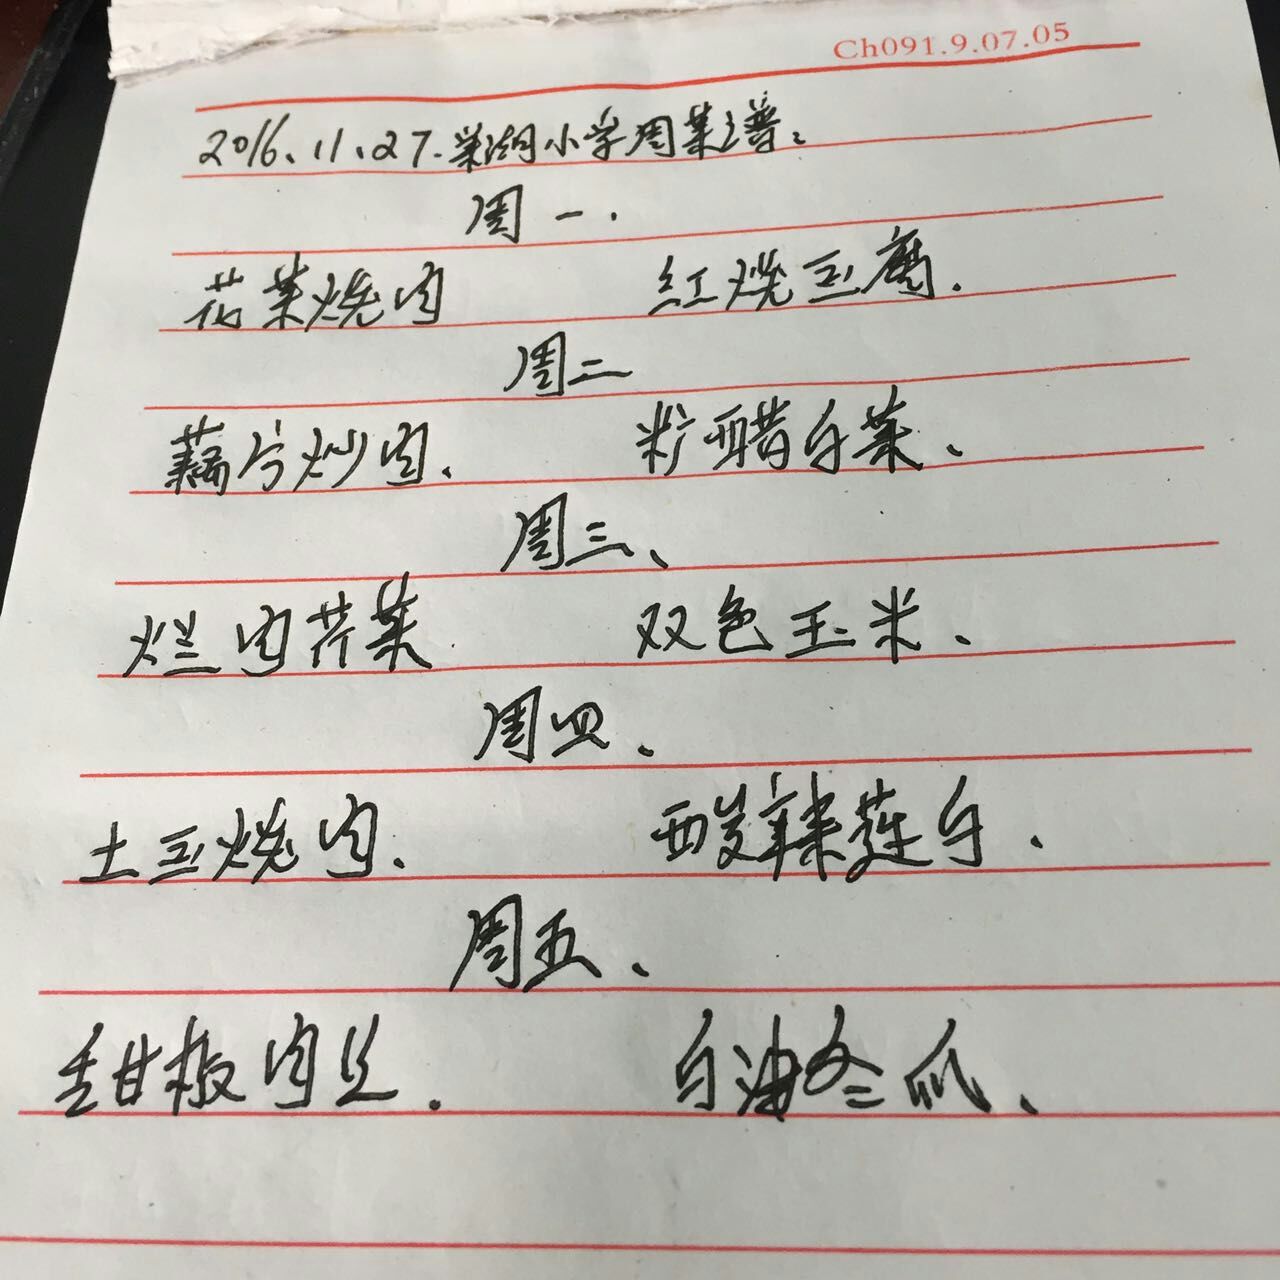 Ch091.9.07.05
2016、11、27.巢湖小学周菜谱：
周一.
花菜烧肉 红烧豆腐.
周二
藕片炒肉. 醋白菜、
周三、
烂肉芹菜 双色玉米、
周四、
土豆烧肉. 酸辣莲白.
周五、
甜椒肉丝. 白油冬瓜、